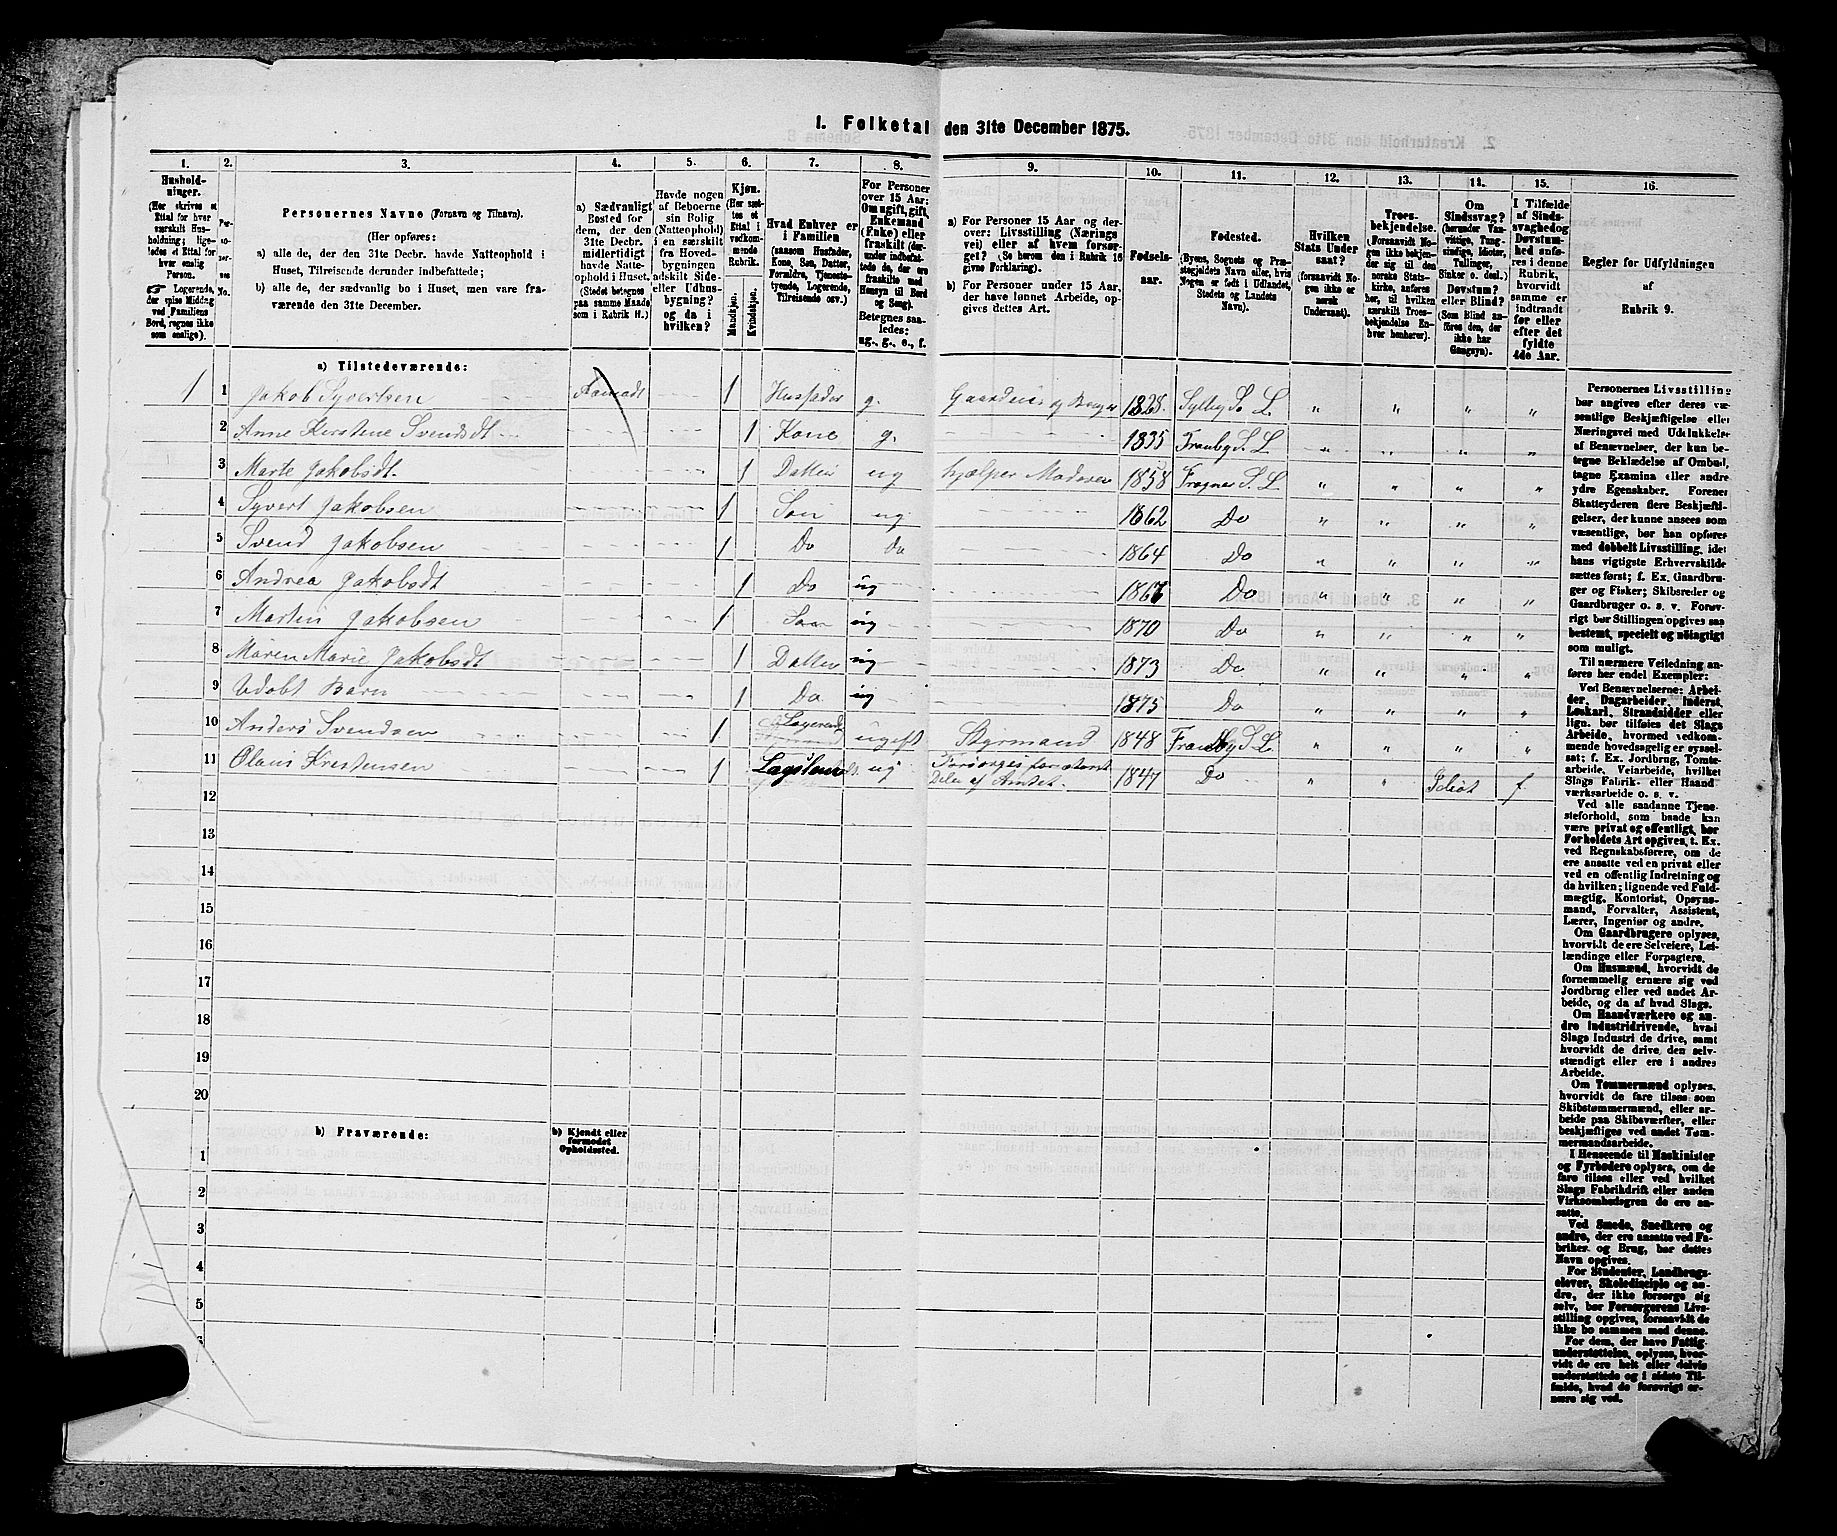 1. Folketal den 31te December 1875.
1. 2. 3. 4. 5. 6. 7. 8. 9. 10. 11. 12. 13. 14. 15. 16.
Hushold-
ninger.
(Her skrives et
Ettal for hver
særskilt Hus-
holdning; lige-
ledes et Ettal for
hver enslig
Person.
☞ Logerende,
der spise Middag
ved Familiens
Bord, regnes ikke
som enslige).
Per-
so-
ner-
nes
No.
Personernes Navne (Fornavn og Tilnavn).
(Her opføres:
a) alle de, der den 31te Decbr. havde Natteophold i
Huset, Tilreisende derunder indbefattede;
b) alle de, der sædvanlig bo i Huset, men vare fra-
værende den 31te December.
a) Sædvanligt
Bosted for
dem, der den
31te Decbr.
midlertidigt
havde Natte-
ophold i Huset.
(Stedet betegnes
paa samme Maade
som i Rubrik 11.)
Havde nogen
af Beboerne
sin Bolig
(Natteophold)
i en særskilt
fra Hoved-
bygningen
adskilt Side-
eller Udhus-
bygning?
og da i
hvilken?
Kjøn.
(Her sæt-
tes et
Ettal i
vedkom-
mende
Rubrik.
Mandkjøn.
Kvindekjøn.
Hvad Enhver er
i Familien
(saasom Husfader,
Kone, Søn, Datter,
Forældre, Tjeneste-
tyende, Logerende,
Tilreisende osv.)
For Personer
over 15 Aar:
Om ugift, gift,
Enkemand
(Enke) eller
fraskilt (der-
under indbefat-
tede de, der ere
fraskilte med
Hensyn til Bord
og Seng).
Betegnes saa-
ledes:
ug., g., e., f.
a) For Personer 15 Aar og der-
over: Livsstilling (Nærings
vei) eller af hvem forsør-
get? (Se herom den i Rubrik 16
givne Forklaring).
b) For Personer under 15 Aar,
der have lønnet Arbeide, op-
gives dettes Art.
Fødsels-
aar.
Fødested.
(Byens, Sognets og Præ-
stegjeldets Navn eller, hvis
Nogen er født i Udlandet,
Stedets og Landets
Navn).
Hvilken
Stats Under
saat?
(forsaavidt No-
gen ikke er
norsk
Undersaat).
Troes-
bekjendelse.
(Forsaavidt No-
gen ikke bekjen-
der sig til den
norske Stats-
kirke, anføres
her, til hvilken
særskilt Troes-
bekjendelse En-
hver henhører).
Om
Sindssvag?
(herunder Van-
vittige, Tung-
sindige, Idioter,
Tullinger,
Sinker o. desl.)
Døvstum?
eller Blind?
(Som Blind an-
føres den, der
ikke har
Gangsyn).
I Tilfælde
af Sinds-
svaghed og
Døvstum-
hed anfø-
res i denne
Rubrik,
hvorvidt
samme er
indtraadt
før eller
efter det
fyldte
4de Aar.
Regler for Udfyldningen
af
Rubrik 9.
a) Tilstedeværende:
1 1 Jakob Syvertsen 1 Husfader g. 1828. L.
2 Anne Kerstene Svendsdt 1 Kone g. 1835 S. L.
3 Marte Jakobsdt. 1 Datter ug hjælper Moderen 1858 Frogner S. L
4 Syvert Jakobsen 1 Søn ug 1862 Do
5 Svend Jakobsen 1 Do Do 1864 Do
6 Andrea Jakobsdt 1 Do ug Do
7 Martin Jakobsen 1 Søn ug 1870 Do
8 Maren Marie Jakobsdt 1 Datter ug 1873 Do
9 Udøbt Barn 1 Do ug 1875 Do
10 Anders Svendsen 1 Logerende ugift Styrmand 1848 S. L.
11 Olaus Krestensen 1 ug af Amtet. 1847 Do Idiot f
12
13
14
15
16
17
18
19
20
b) Fraværende:
b) Kjendt eller
formodet
Opholdssted.
1
2
3
4
5
6
Personernes Livsstilling
bør angives efter deres væ-
sentlige Beskjæftigelse eller
Næringsvei med Udelukkelse
af Benævnelser, der kun be-
tegne Beklædelse af Ombud,
tagne Examina eller andre
ydre Egenskaber. Forener
Skatteyderen flere Beskjæfti-
gelser, der kunne ansees som
væsentlige, bør han opføres
med dobbelt Livsstilling, idet
hans vigtigste Erhvervskilde
sættes først; f. Ex. Gaardbru-
ger og Fisker; Skibsreder og
Gaardbruger o. s. v. Forøv-
rigt bør Stillingen opgives saa
bestemt, specielt og nøiagtigt
som muligt.
Til nærmere Veiledning an-
føres her endel Exempler:
Ved Benævnelserne: Arbei-
der, Dagarbeider, Inderst,
Løskarl, Strandsidder eller
lign. bør tilføies det Slags
Arbeide, hvormed vedkom-
mende hovedsagelig er syssel-
sat; f. Ex. Jordbrug, Tomte-
arbeide, Veiarbeide, hvilket
Slags Fabrik- eller Haand
værksarbeide o. s. v.
Ved alle saadanne Tjene-
steforhold, som baade kan
være privat og offentligt, bør
Forholdets Art opgives, t. Ex.
ved Regnskabsførere, om de
ere ansatte ved en privat eller
ved en offentlig Indretning og
da hvilken; lignende ved Fuld-
mægtig, Kontorist, Opsyns-
mand, Forvalter, Assistent,
Lærer, Ingeniør og andre.
Om Gaardbrugere oplyses,
hvorvidt de ere Selveiere, Lei-
lændinge eller Forpagtere.
Om Husmænd, hvorvidt de
fornemmelig ernære sig ved
Jordbrug eller ved andet Ar-
beide, og da af hvad Slags.
Om Haandværkere og an-
dre Industridrivende, hvad
Slags Industri de drive, samt
hvorvidt de drive den selv-
stændigt eller ere i andres
Arbeide.
Om Tømmermænd oplyses,
hvorvidt de fare tilsøs som
Skibstømmermænd, eller ar-
beide paa Skibsværfter, eller
beskjæftiges ved andet Tøm-
mermandsarbeide.
I Henseende til Maskinister
og Fyrbødere oplyses, om de
fare tilsøs eller ved hvilket
Slags Fabrikdrift eller anden
Virksomhedsgren de ere an-
satte.
Ved Smede, Snedkere og
andre, der ere ansatte ved Fa-
briker og Brug, bør dettes
Navn opgives.
For Studenter, Landbrugs-
elever, Skoledisciple og an-
dre, der ikke forsørge sig
selv, bør Forsørgerens Livs-
stilling opgives, forsaavidt de
ikke bo sammen med denne.
For dem, der have Fattig-
understøttelse, oplyses, hvor-
vidt de ere helt eller delvis
understøttede og i sidste Til-
fælde, hvad de forøvrigt er-
nære sig ved.